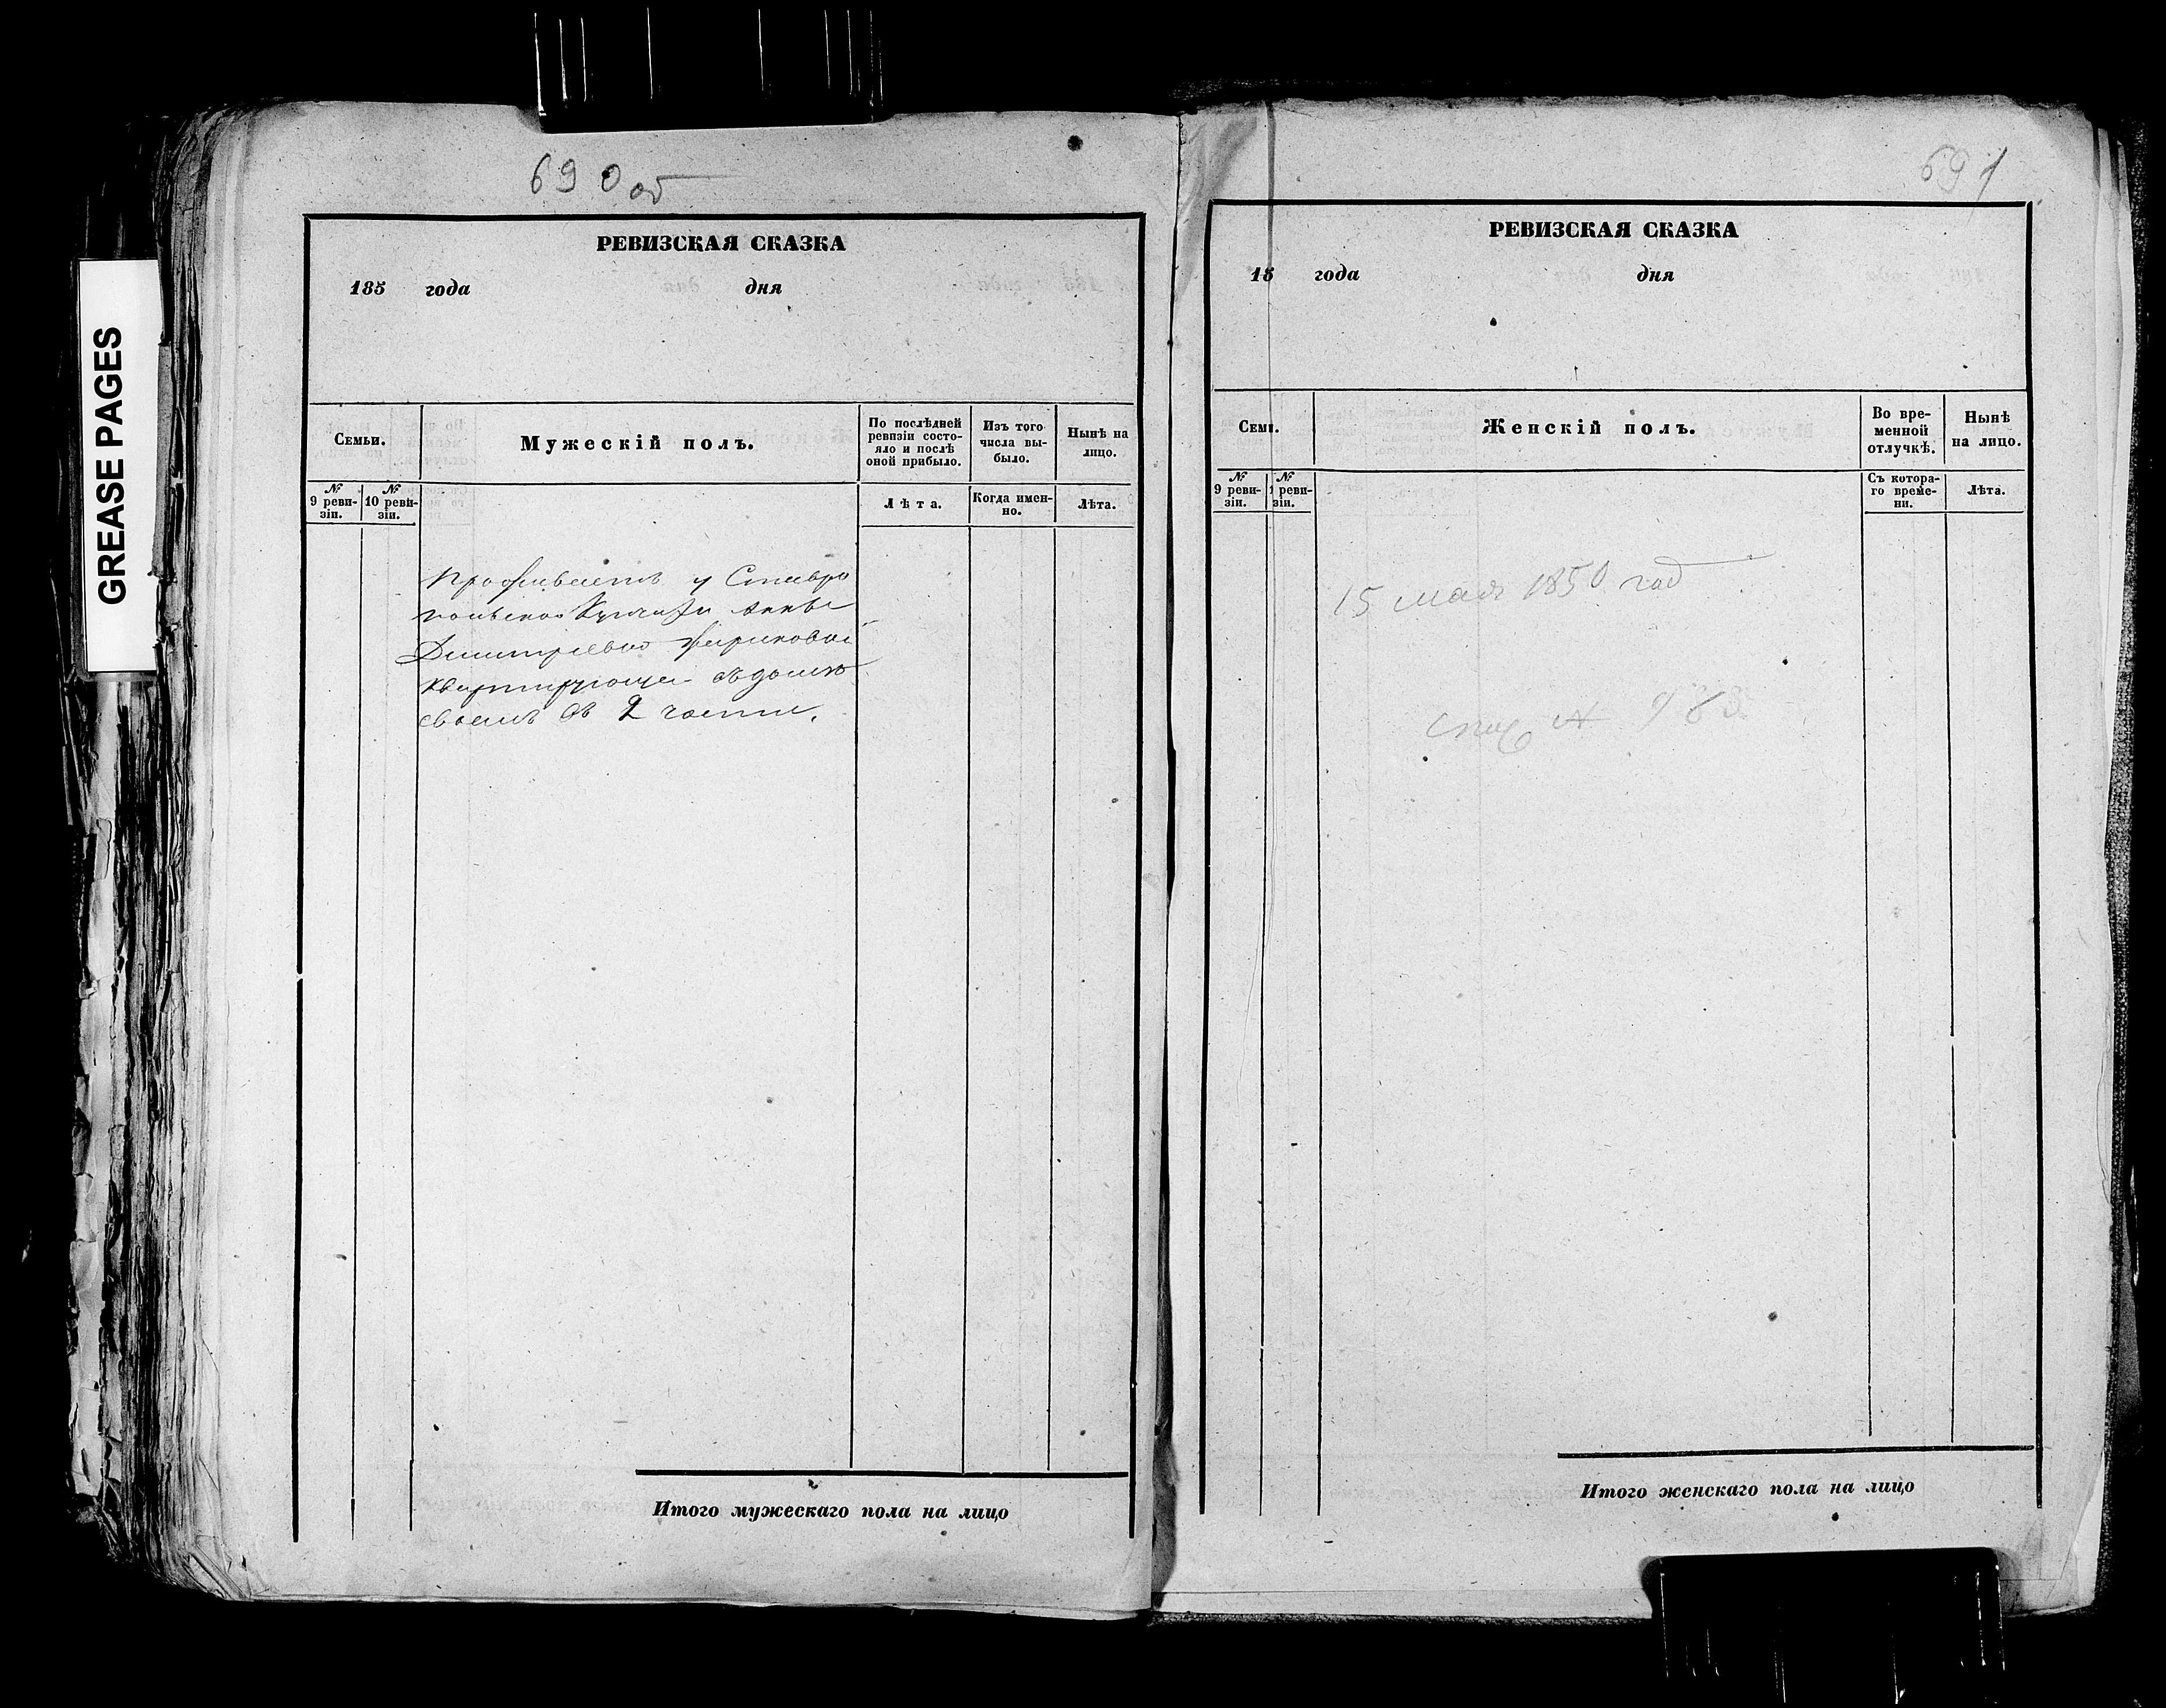 GREASE PAGES
690 об
РЕВИЗСКАЯ СКАЗКА
185 года дня
Семьи.
Мужескій полъ.
По послѣдней ревизіи состояло и послѣ оной прибыло.
Изъ того числа выбыло.
Нынѣ на лицо.
№ 9 ревизіи.
№ 10 ревизіи.
Лѣта.
Когда именно.
Лѣта.
Проживаетъ у Ставро
польской Купчихи Анны
Димитріевной
квартирующей въ домѣ
своемъ во 2 части.
Итого мужескаго пола на лицо
691
РЕВИЗСКАЯ СКАЗКА
15 года дня
Семи.
Женскій полъ.
Во временной отлучкѣ.
Нынѣ на лицо.
№ 9 ревизіи.
№ 1 ревизіи.
Съ котораго времени.
Лѣта.
15 мая 1850 год
983
Итого женскаго пола на лицо